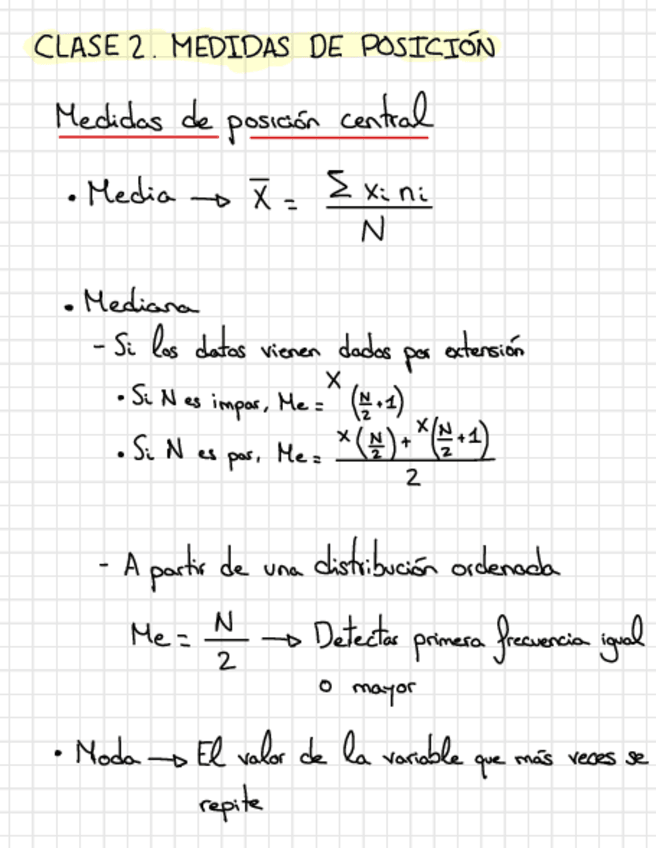 CLASE 2. MEDIDAS DE POSICIÓN
Medidas de posición central
• Media → X̄ = Σ xi ni / N
• Mediana
- Si los datos vienen dados por extensión
• Si N es impar, Me = X (N/2 + 1)
• Si N es par, Me = X(N/2) + X(N/2 + 1) / 2
- A partir de una distribución ordenada
Me = N/2 → Detectar primera frecuencia igual
o mayor
• Moda → El valor de la variable que más veces se
repite